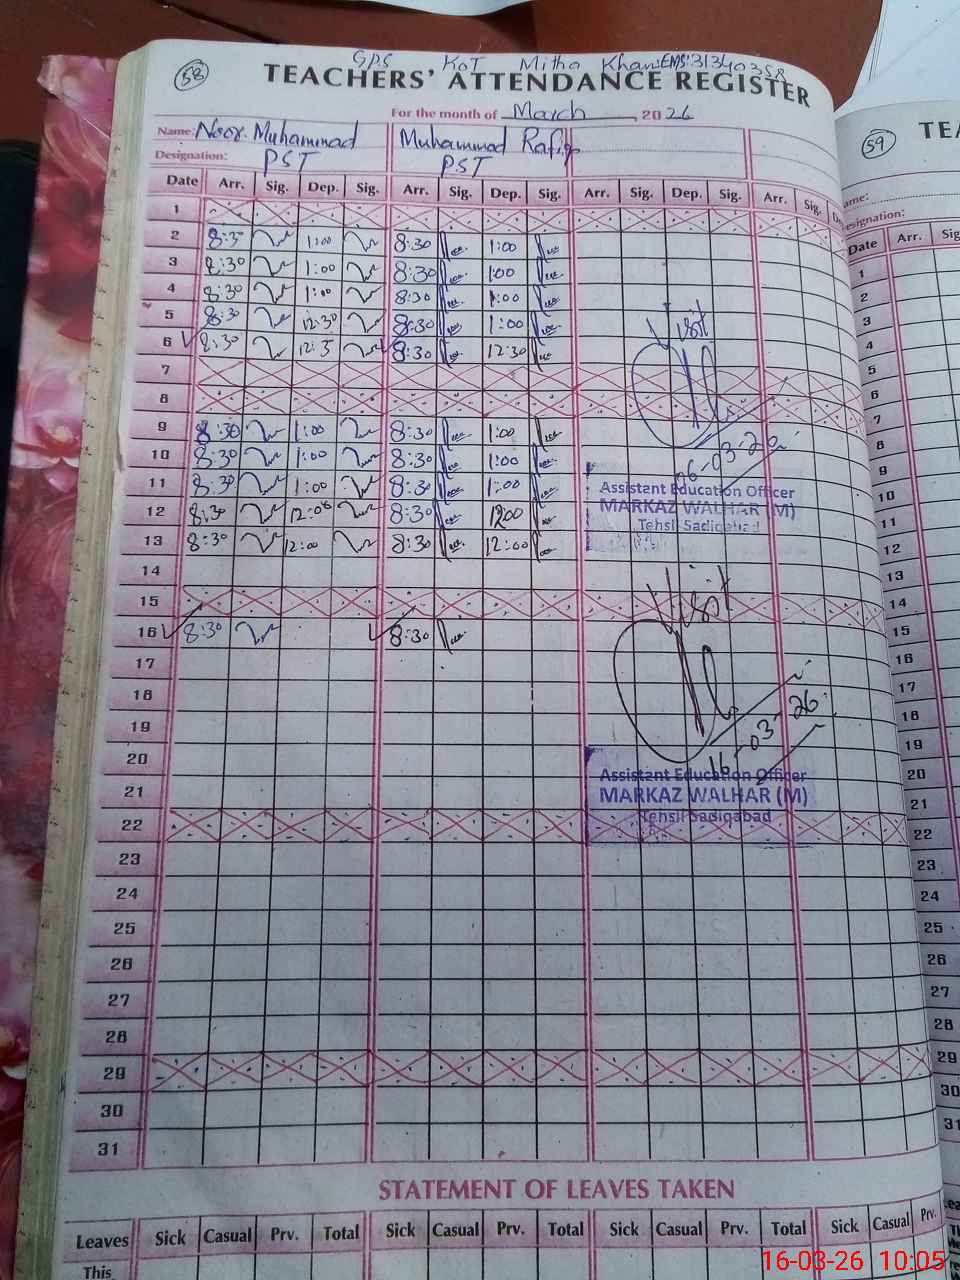 58
GPS KOT Mitha Khan EMS:31340358
TEACHERS' ATTENDANCE REGISTER
For the month of March, 2026
Name: Noor Muhammad Muhammad Rafiq
Designation: PST PST
Date Arr. Sig. Dep. Sig. Arr. Sig. Dep. Sig. Arr. Sig. Dep. Sig. Arr. Sig.
1
2 8:30 1:00 8:30 1:00
3 8:30 1:00 8:30 1:00
4 8:30 1:00 8:30 1:00
5 8:30 12:30 8:30 1:00
6 8:30 8:30 12:30
7
8
9 8:30 1:00 8:30 1:00
10 8:30 1:00 8:30 1:00
11 8:30 1:00 8:30 1:00
12 8:30 12:00 8:30 1200
13 8:30 12:00 8:30 12:00
14
15
16 8:30 8:30
17
18
19
20
21
22
23
24
25
26
27
28
29
30
31
Visit
Assistant Education Officer
MARKAZ WALHAR (M)
Tehsil Sadiqabad
Visit
16-03-26
Assistant Education Officer
MARKAZ WALHAR (M)
Tehsil Sadiqabad
STATEMENT OF LEAVES TAKEN
Leaves Sick Casual Prv. Total Sick Casual Prv. Total Sick Casual Prv. Total Sick Casual Prv.
This
59
TEA
ame:
esignation:
Date Arr. Sig
1
2
3
4
5
6
7
8
9
10
11
12
13
14
15
16
17
18
19
20
21
22
23
24
25
26
27
28
29
30
31
16-03-26 10:05